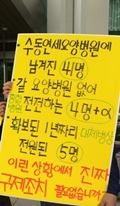 수동연세요양병원에
남겨진 41명
갈 요양병원 없어
전전하는 4명+α
확보된 1년짜리
전원된 5명
이런 상황에서 진짜
구제조치 필요없습니까?